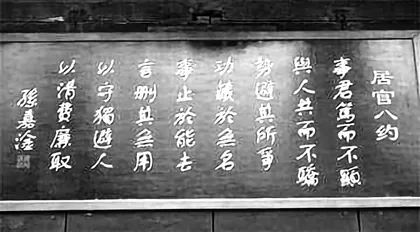 居官八约
事君篤而不顯
與人共而不驕
勢避其所爭
功藏於無名
事止於能去
言删其無用
以守獨避人
以清費廉取
孫嘉淦